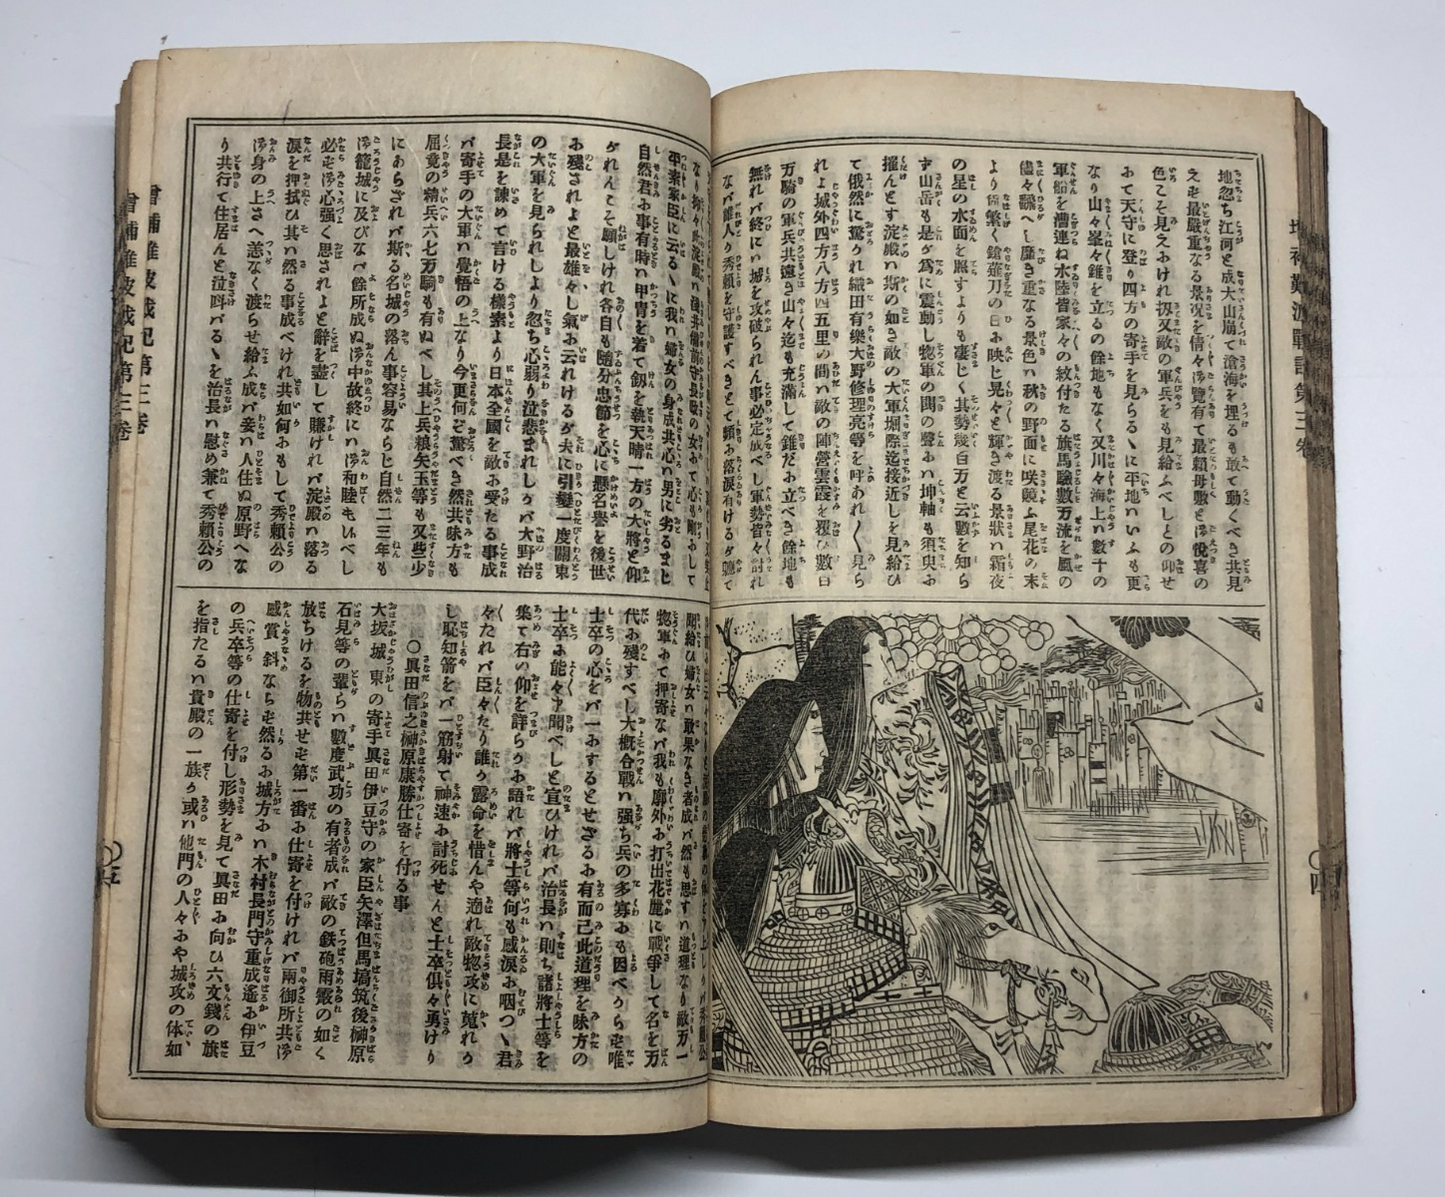 増補難波戰記第三卷
地忽ち江河と成大山崩て滄海を埋るも敢て動くべき共見
えず最嚴重なる景况を倩々御覽有て最頼母敷と御悅喜の
色こそ見えにけれ扨又敵の軍兵をも見給ふべしとの仰せ
にて天守に登り四方の寄手を見らるゝに平地ハいふも更
なり山々峯々錐を立るの餘地もなく又川々海上ハ數十の
軍船を漕連ね水陸皆家々の紋付たる旗馬驗數万流を風の
儘々飜へし靡き重なる景色ハ秋の野面に咲競ふ尾花の末
より尚繁く鎗薙刀の日に映じ晃々と輝き渡る景狀ハ霜夜
の星の水面を照すよりも凄じく其勢幾百万と云數を知ら
ず山岳も是が爲に震動し惣軍の鬨の聲にハ坤軸も須臾に
摧んとす淀殿ハ斯の如き敵の大軍堀際迄接近しを見給ひ
て俄然に驚かれ織田有樂大野修理亮等を呼れあれ〱見ら
れよ城外四方八方四五里の間ハ敵の陣營雲霞を覆ひ數百
万騎の軍兵共遠き山々迄も充滿して錐だに立べき餘地も
無れバ終にハ城を攻破られん事必定成べし軍勢皆々討れ
なバ誰人か秀頼を守護すべきとて頻に落淚有けるが
〇四
平素家臣に云るゝに我ハ婦女の身成共心ハ男に劣るまじ
自然君に事有時ハ甲冑を着て劔を執天晴一方の大將と仰
がれんこそ願しけれ各自も隨分忠節を心に懸名譽を後世
に殘されよと最雄々し氣に云れけるが夫に引變一度關東
の大軍を見られしより忽ち心弱り泣悲まれしかバ大野治
長是を諫めて言ける樣素より日本全國を敵に受たる事成
バ寄手の大軍ハ覺悟の上なり今更何ぞ驚べき然共味方も
屈竟の精兵六七万騎も有ぬべし其上兵粮矢玉等も又些少
にあらざれバ斯る名城の落ん事容易ならじ自然二三年も
御籠城に及びなバ餘所成ぬ御中故終にハ御和睦も有べし
必ず御心強く思されよと辭を盡して賺けれバ淀殿ハ落る
淚を押拭ひ其ハ然る事成べけれ共如何にもして秀頼公の
御身の上さへ恙なく渡らせ給ふ成バ妾ハ人住ぬ原野へな
り共行て住居んと泣叫ばるゝを治長ハ慰め兼て秀頼公の
聞給ひ婦女ハ敢果なき者成バ然も思すハ道理なり敵万一
惣軍にて押寄なバ我も廓外に打出花麗に戰爭して名を万
代に殘すべし大概合戰ハ強ち兵の多寡にも因べからず唯
士卒の心をバ一にするとせざるに有而已此道理を味方の
士卒に能々申聞べしと宣ひけれバ治長ハ則ち諸將士等を
集て右の仰を詳らかに語れバ將士等何も感淚に咽つゝ君
々たれバ臣々たり誰か露命を惜んや遖れ敵惣攻に蒐れか
し恥知箭をバ一筋射て神速に討死せんと士卒俱々勇けり
〇眞田信之榊原康勝仕寄を付る事
大坂城東の寄手眞田伊豆守の家臣矢澤但馬塙筑後榊原
石見等の輩らハ數度武功の有者成バ敵の鉄砲雨霰の如く
放ちけるを物共せず第一番に仕寄を付けれバ兩御所共御
感賞斜ならず然るに城方にハ木村長門守重成遙に伊豆
の兵卒等の仕寄を付し形勢を見て眞田に向ひ六文錢の旗
を指たるハ貴殿の一族か或ハ他門の人々にや城攻の体如
増補難波戰記第三卷